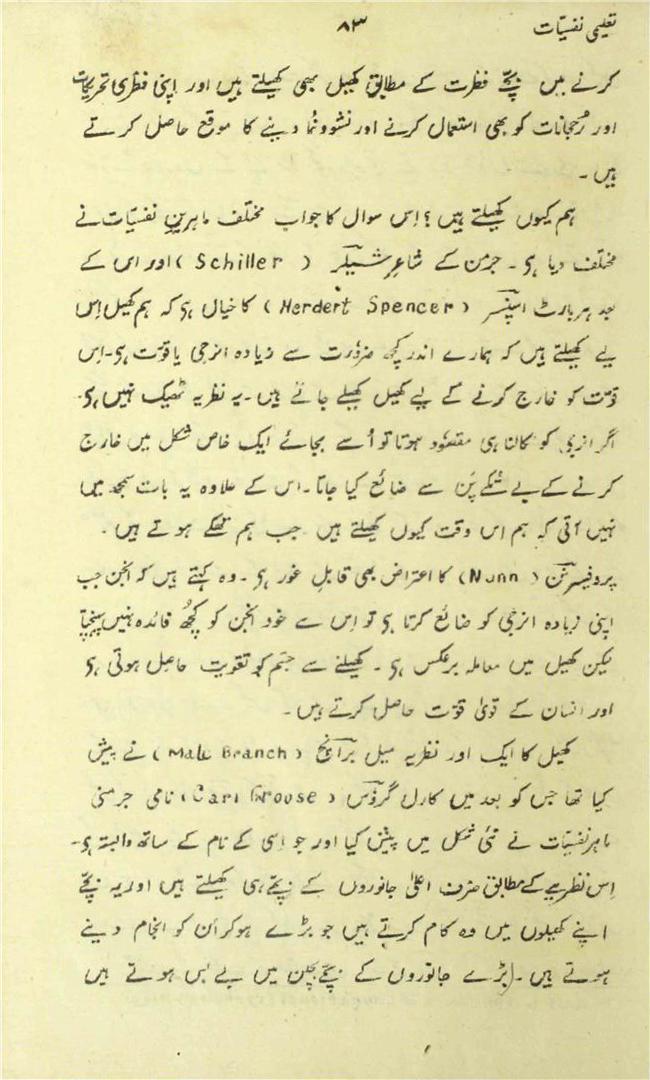 تعلیمی نفسیّات ۸۳
کرنے میں بچّے فطرت کے مطابق کھیل بھی کھیلتے ہیں اور اپنی فطری تحریکات
اور رُجحانات کو بھی استعمال کرنے اور نشوونُما دینے کا موقع حاصل کرتے
ہیں ۔
ہم کیوں کھیلتے ہیں ؟ اِس سوال کا جواب مختلف ماہرینِ نفسیّات نے
مختلف دیا ہی ۔ جرمن کے شاعر شیلر ( Schiller ) اور اس کے
بعد ہربارٹ اسپنسر ( Herdert Spencer ) کا خیال ہی کہ ہم کھیل اِس
لیے کھیلتے ہیں کہ ہمارے اندر کچھ ضرورت سے زیادہ انرجی یا قوّت ہی ۔ اِس
قوّت کو خارج کرنے کے لیے کھیل کھیلے جاتے ہیں ۔ یہ نظریہ ٹھیک نہیں ہی ۔
اگر انرجی کو نکالنا ہی مقصُود ہوتا تو اُسے بجائے ایک خاص شکل میں خارج
کرنے کے بے تُکے پَن سے ضائع کیا جاتا ۔ اس کے علاوہ یہ بات سمجھ میں
نہیں آتی کہ ہم اس وقت کیوں کھیلتے ہیں جب ہم تھکے ہوتے ہیں ۔
پروفیسر نن ( Nunn ) کا اعتراض بھی قابلِ غور ہی ۔ وہ کہتے ہیں کہ انجن جب
اپنی زیادہ انرجی کو ضائع کرتا ہی تو اِس سے خود انجن کو کچھُ فائدہ نہیں پہنچتا
لیکن کھیل میں معاملہ برعکس ہی ۔ کھیلنے سے جسم کو تقویت حاصل ہوتی ہی
اور انسان کے قویٰ قوّت حاصل کرتے ہیں ۔
کھیل کا ایک اور نظریہ میل برانچ ( Male Branch ) نے پیش
کیا تھا جس کو بعد میں کارل گروُس ( Carl Groose ) نامی جرمنی
ماہر نفسیّات نے نئی شکل میں پیش کیا اور جو اِسی کے نام کے ساتھ وابستہ ہی ۔
اِس نظریے کے مطابق صرف اعلیٰ جانوروں کے بچّے ہی کھیلتے ہیں اور یہ بچّے
اپنے کھیلوں میں وہ کام کرتے ہیں جو بڑے ہوکر اُن کو انجام دینے
ہوتے ہیں ۔ بڑے جانوروں کے بچّے بچپن میں بے بس ہوتے ہیں